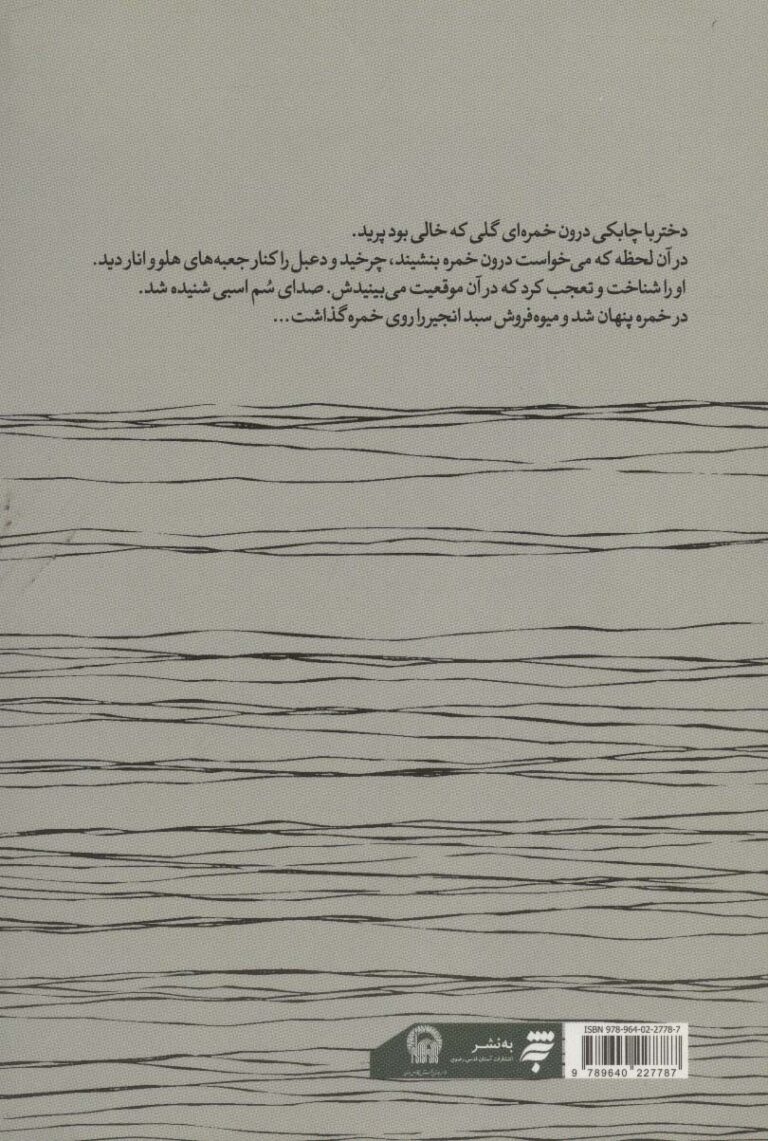 دختر با چابکی درون خمره‌ای گلی که خالی بود پرید.
در آن لحظه که می‌خواست درون خمره بنشیند، چرخید و دعبل را کنار جعبه‌های هلو و انار دید.
او را شناخت و تعجب کرد که در آن موقعیت می‌بینیدش. صدای سُم اسبی شنیده شد.
در خمره پنهان شد و میوه‌فروش سبد انجیر را روی خمره گذاشت...
ISBN 978-964-02-2778-7
به‌نشر
انتشارات آستان قدس رضوی
9 789640 227787